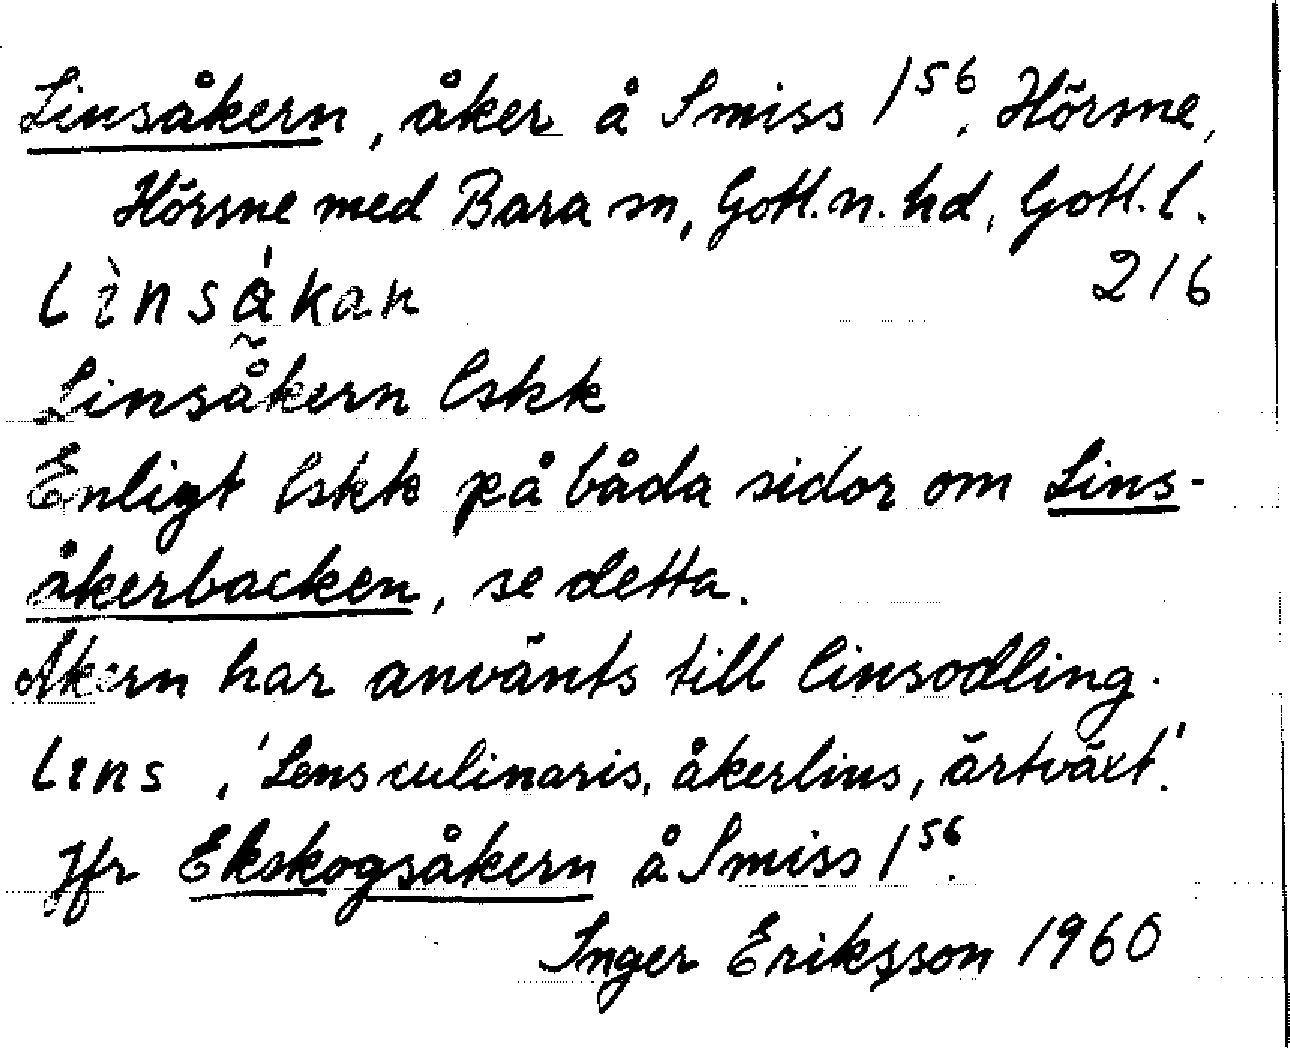 Linsåkern, åker å Smiss 1⁵⁶, Hörsne,
Hörsne med Bara sn, Gotl. n. hd, Gotl. l.
lìnsá̰kan 216
Linsåkern lskk
Enligt lskk på båda sidor om Lins-
åkerbacken, se detta.
Åkern har använts till linsodling.
lɪns, 'Lens culinaris, åkerlins, ärtväxt'.
Jfr Ekskogsåkern å Smiss 1⁵⁶.
Inger Eriksson 1960